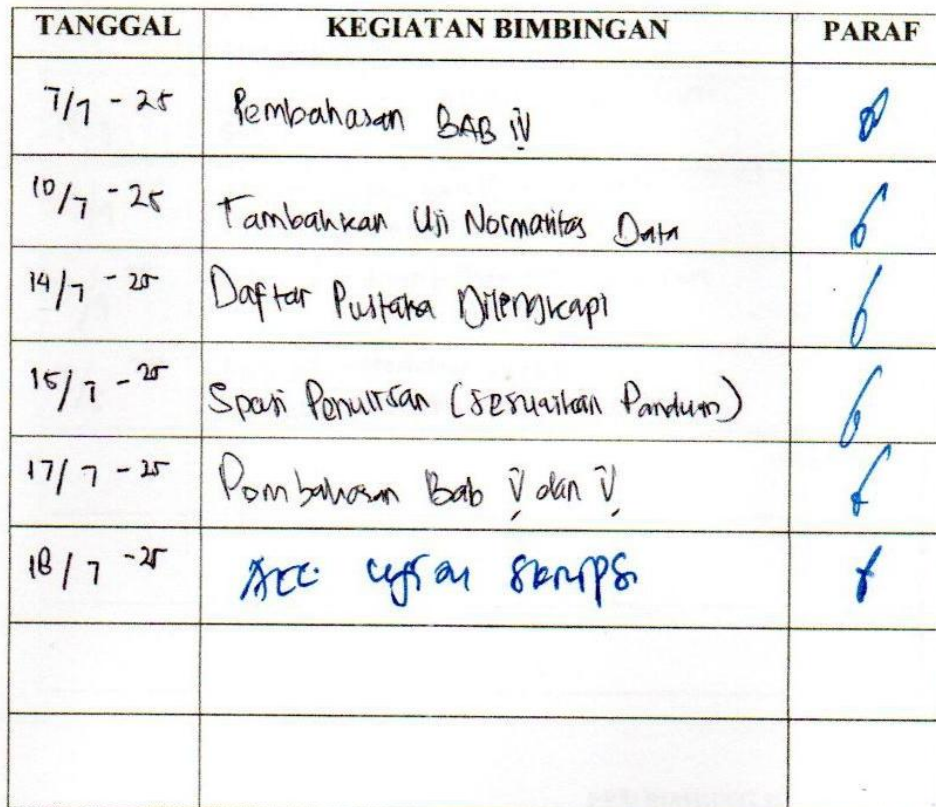 TANGGAL KEGIATAN BIMBINGAN PARAF
7/7 - 25 Pembahasan BAB IV
10/7 - 25 Tambahkan Uji Normalitas Data
14/7 - 25 Daftar Pustaka Dilengkapi
15/7 - 25 Spasi Penulisan (sesuaikan Panduan)
17/7 - 25 Pembahasan Bab IV dan V
18/7 - 25 ACC ujian skripsi